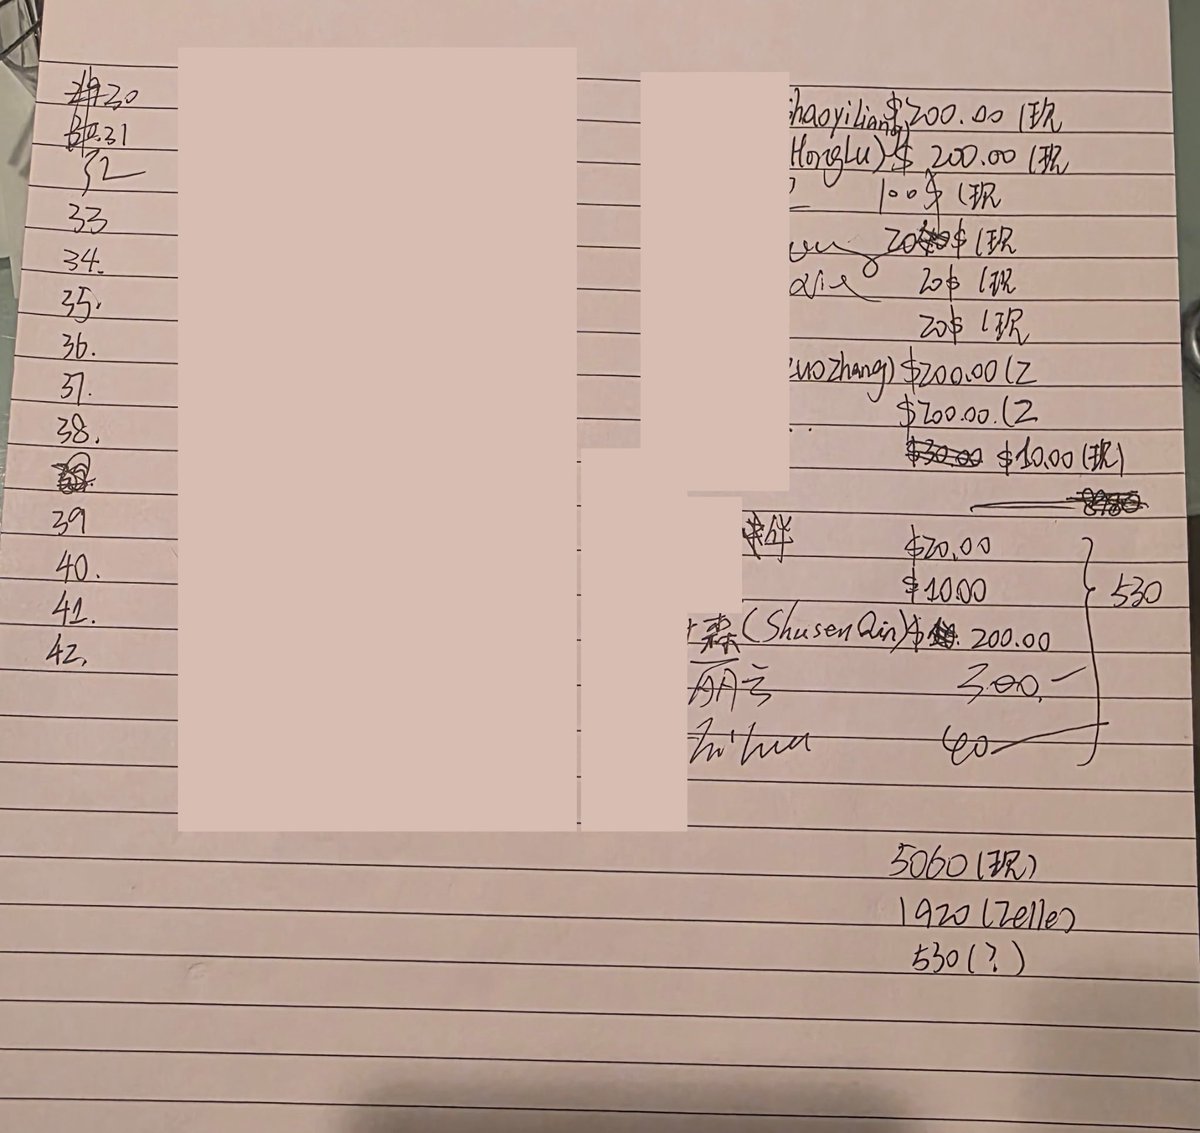 30 ShaoyiLiang) $200.00 (现
31 HongLu) $ 200.00 (现
32 100$ (现
33 20$ (现
34. 20$ (现
35. 20$ (现
36. uoZhang) $200.00 (Z
37. $200.00. (Z
38. $30.00 $10.00 (现)
39 伴 $20.00
40. $10.00
41. 森 (Shusen Qin) $ 200.00
42. 丽云 300.
40
530
5060 (现)
1920 (Zelle)
530 (?)